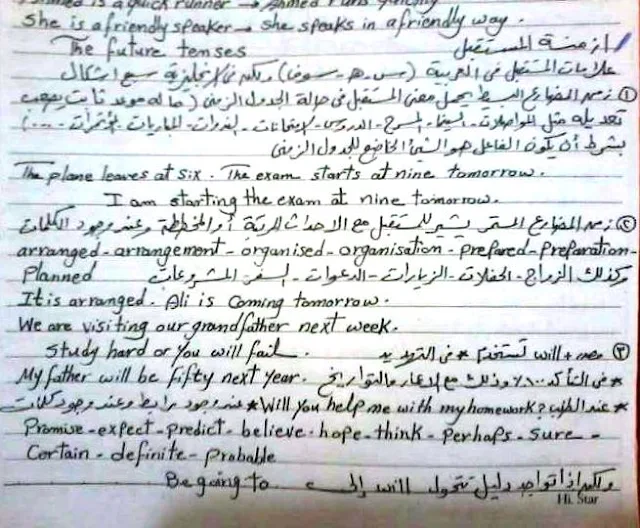 Ahmed is a quick runner → Ahmed runs quickly
She is a friendly speaker → She speaks in a friendly way.
The future tenses أزمنة المستقبل
علامات المستقبل في العربية (س - هـ - سوف) ولكن في الإنجليزية سبع أشكال
① زمن المضارع البسيط يحمل معنى المستقبل في حالة الجدول الزمني (ما له موعد ثابت يصعب
تعديله مثل المواصلات - السينما - المسرح - الدروس - الامتحانات - الندوات - المباريات - المؤتمرات - ...)
بشرط أن يكون الفاعل هو الشيء الخاضع للجدول الزمني
The plane leaves at six. The exam starts at nine tomorrow.
I am starting the exam at nine tomorrow.
② زمن المضارع المستمر يشير للمستقبل مع الأحداث المرتبة أو المخططة وعند وجود الكلمات
arranged - arrangement - organised - organisation - prepared - preparation -
Planned وكذلك الزواج - الحفلات - الزيارات - الدعوات - السفر - المشروعات
It is arranged. Ali is coming tomorrow.
We are visiting our grandfather next week.
③ مصدر + will تستخدم * في التهديد Study hard or you will fail.
* في التأكد ١٠٠٪ وذلك مع الأعمار والتواريخ My father will be fifty next year.
* عند الطلب Will you help me with my homework? * عند وجود رابط وعند وجود كلمات
Promise - expect - predict - believe - hope - think - perhaps - sure -
Certain - definite - probable
ولكن إذا تواجد دليل تتحول will إلى Be going to
Hi. Star